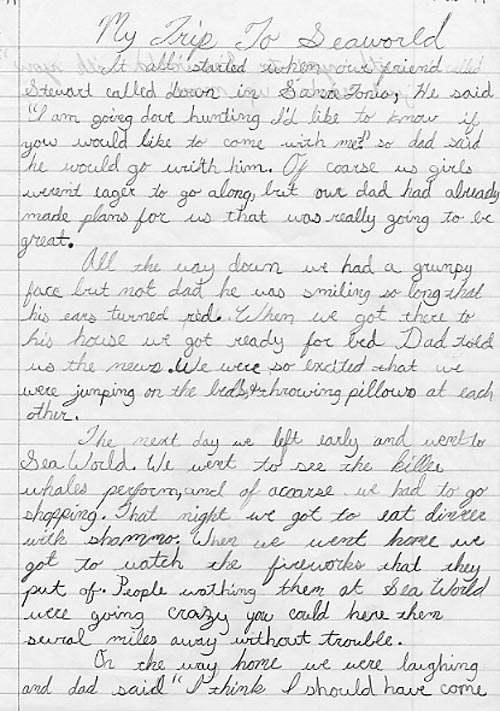 My Trip To Seaworld
It all started when our friend called
Stewart called down in SanaTonio, He said
"I am goieg dove hunting I'd like to know if
you would like to come with me?" so dad said
he would go writh him. Of coarse us girls
weren't eager to go along, but our dad had already
made plans for us that was really going to be
great.
All the way down we had a grumpy
face but not dad he was smiling so long that
his ears turned red. When we got there to
his house we got ready for bed Dad told
us the news. We were so excited that we
were junping on the beds, & throwing pillows at each
other.
The next day we left early and went to
Sea World. We went to see the killer
whales perform, and of acoarse we had to go
shopping. That night we got to eat dinner
with shammo. When we went home we
got to watch the fireworks that they
put of. People wathing them at Sea World
were going crazy you could here them
sevral miles away without trouble.
On the way home we were laughing
and dad said "I think I should have come